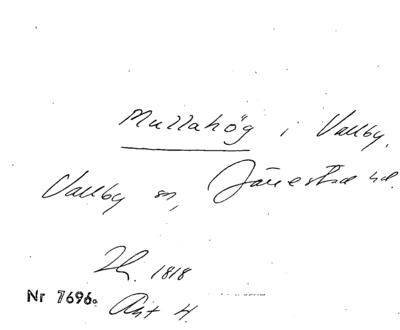 Mullahög i Vallby,
Vallby sn, Järrestad hd.
Zh. 1818
Nr 7696.
Akt 4